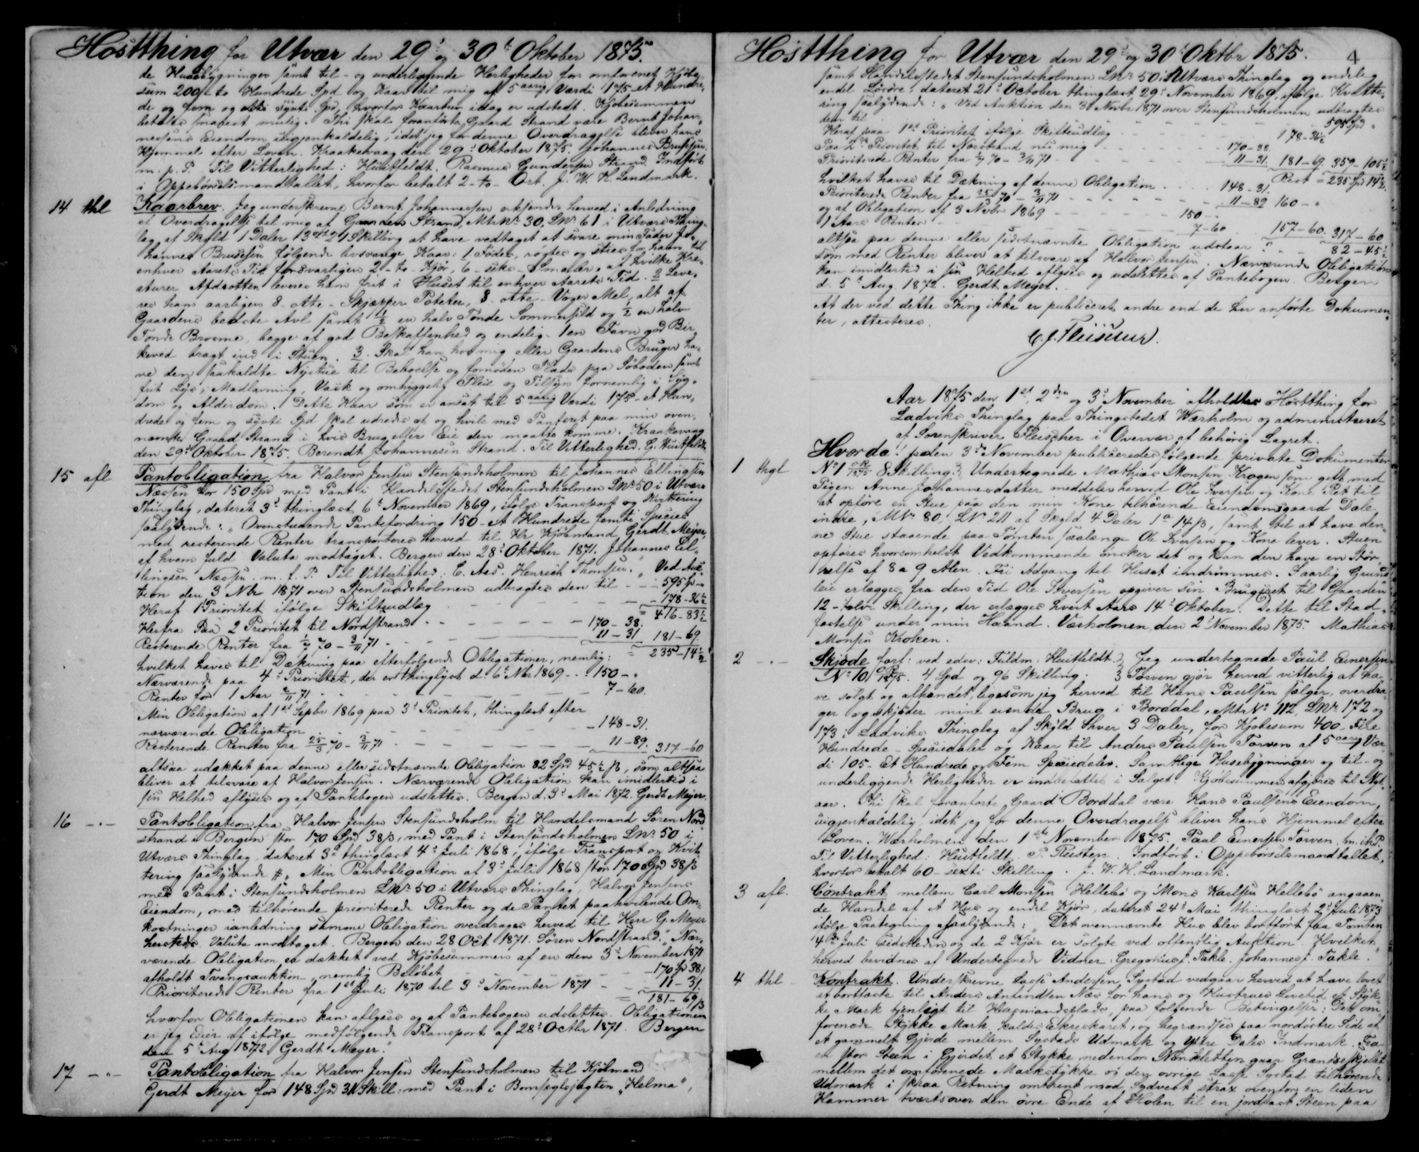 Høstthing for Utvær den 29' og 30' Oktober 1875.
de Huusbygninger samt til- og underliggende Herligheder for omforenet Kjøbe-
sum 200 to Hundrede Spd og Kaar til mig af 5 aarig Værdi 175 et Hundre-
de og fem og sytti Spd, hvorfor Kaarbrev idag er udstedt. Kjøbesummen
betales snarest mulig. Thi skal foranførte Gaard Strand være Bernt Johan-
nessens Eiendom uigjenkaldelig, idet jeg for denne Overdragelse bliver hans
Hjemmel efter Loven. Krakevaag den 29' October 1875. Johannes Brussen
m. p. P. Til Vitterlighed: Huitfeldt. Rasmus Gundersen Strand. Indført
i Oppebørselsmandtallet, hvorfor betalt 2 - to - Ort. J. W. H. Landmark.
14 thl Kaarbrev. Jeg underskrevne Bernt Johannessen udsteder herved i Anledning
af Overdragelse til mig af Gaarden Strand, Mtr. Nr. 30, LNr 61 i Utvær Thing-
lag, af Skyld 1 Daler 13 Skilling at have vedtaget at svare min Fader Jo-
hannes Brussen følgende livsvarige Kaar: 1 Føder, røgter og steller for ham til
enhver Aarets Tid forsvarligen 2 - to - Kjør, 6 - seks - Smaler, af hvilke Kre-
aturer Afdrotten leveres ham frit i Huset til enhver Aarets Tid. 2 Leve-
res ham aarligen 8 - otte - Skjæpper Poteter, 8 - otte - Voger Mel, alt af
Gaardens bedste Avl samt 1/2 en halv Tønde Sommersild og 1/2 en halv
Tønde Brosme, begge af god Beskaffenhed og endelig 1 en Favn god Bir-
keved bragt ind i Stuen. 3 Skal han hos mig eller Gaardens Bruger ha-
ve den saakaldte Nystue til Beboelse og fornøden Plads paa Søboden samt
frit Lys, Madlavning, Vask og omhyggelig Pleie og Tilsyn fornemlig i Syg-
dom og Alderdom. Dette Kaar som er ansat til 5 aarig Værdi 175 - et Hun-
dredet og fem og sytti Spd skal udredes af og hvile med Panteret paa min oven-
nævnte Gaard Strand i hvis Brug eller Eie den maatte komme. Krakevaag
den 29' October 1875. Berendt Johannesen Strand. Til Vitterlighed. G. Huitfeldt.
15 afl Pantobligation fra Halvor Jensen Stensundsholmen til Johannes Ellingsen
Næssen for 150 Spd med Pant i Handelsstedet Stensundsholmen LNr 50 i Utvær
Thinglag, dateret 3' thinglæst 6' November 1869, ifølge Transport og Kvittering
saalydende: "Ovenstaaende Pantefordring 150 - Et Hundrede femti Species
med resterende Renter transporteres herved til Hr Kjøbmand Gerdt Meyer,
af hvem fuld Valuta modtaget. Bergen den 28' Oktober 1871. Johannes El-
lingsen Næssen. m. f. P. Til Vitterlighed: C. Aad. Henrich Thomsen. Ved Auk-
tion den 3 Nbr 1871 over Stensundsholmen udbragtes den til - - 595
Heraf 1 Prioritet ifølge Skilteudlæg - - - 178-36 1/2
416-83 1/2
Herfra Paa 2 Prioritet til Nordstrand - - 170-38.
Resterende Renter fra 1/7 70 - 3/11 71. - - 11-31 181-69
235-14 1/2
hvilket haves til Dækning paa efterfølgende Obligationer, nemlig:
Nærværende paa 4' Prioritet, der er thinglyst d. 6 Nbr 1869 - - 150 - "
Renter for 1 Aar 3/11 71 - - - 7-60.
Min Obligation af 1ste Septbr 1869 paa 3' Prioritet, thinglæst efter
nærværende Obligation - - - 148-31.
Resterende Renter fra 70 - 3/11 71 - - 11-89. 317-60
altsaa udækket paa denne eller sidstnævnte Obligation 82 Spd 45 1/2 ß, som altsaa
bliver at tilsvare af Halvor Jensen. Nærværende Obligation kan imidlertid i
sin Helhed aflyses og af Pantebogen udslettes. Bergen d. 5' Mai 1872. Gerdt Meyer.
16 -"- Pantobligation fra Halvor Jensen Stensundsholm til Handelsmand Søren Nord-
strand i Bergen for 170 Spd 38 ß, med Pant i Stensundsholmen LNr. 50 i
Utvær Thinglag, dateret 3' thinglæst 4' Juli 1868, ifølge Transport og Kvit-
tering saalydende: "Min Pantobligation af 3' Juli 1868 stor 170 Spd 38 ß
med Pant i Stensundsholmen LNr 50 i Utvær Thinglag, Halvor Jensens
Eiendom, med tilhørende prioriterede Renter og de Pantet paahvilende Om-
kostninger i anledning samme Obligation overdrages herved til Herr G. Meyer
hvorfor Valuta modtaget. Bergen den 28 Oct 1871. Søren Nordstrand". "Nær-
værende Obligation er dækket ved Kjøbesummen af en den 3' November 1871
afholdt Tvangsauktion, nemlig Beløbet - - - 170 Spd 38 ß
Prioriterede Renter fra 1ste Juli 1870 til 3' November 1871 - - 11-31
181-69 ß
hvorfor Obligationen kan aflyses og af Pantebogen udslettes. Obligationen
er jeg Eier af ifølge medfølgende Transport af 28' Octbr 1871. Bergen
den 5 Aug 1872. Gerdt Meyer."
17 -"- Pantobligation fra Halvor Jensen Stensundsholmen til Kjøbmand
Gerdt Meyer for 148 Spd 31 Skill. med Pant i Bomseglsjagten "Helma",
Høstthing for Utvær den 29' og 30' Oktbr 1875. 4
samt Handelsstedet Stensundsholmen LNr 50 i Utvær Thinglag og endelig
endel Løsøre, dateret 21' October thinglæst 29' November 1869, ifølge Kvitte-
ring saalydende: "Ved Auktion den 3 Novbr 1871 over Stensundsholmen udbragtes
den til - - - 595 Spd "
Heraf paa 1ste Prioritet ifølge Skilteudlæg - - 178-36 1/2
Paa 2' Prioritet til Nordstrand nu mig - - 170-38
Prioriterede Renter fra 1/7 70 - 3/11 71 - - 11-31. 181-69 359-105 1/2
Rest = 235 Spd 14 1/2
hvilket haves til Dækning af denne Obligation - - 148-31.
Prioriterede Renter fra 70 - 3/11 71 - - 11-89 160 - "
og at Obligation af 3 Novbr 1869 - - 150 - "
1 Aars Renter - - 7-60 157-60. 317-60
altsaa paa denne eller sidstnævnte Obligation udestaar " - 82-45 1/2
som med Renter bliver at tilsvare af Halvor Jensen. Nærværende Obligation
kan imidlertid i sin Helhed aflyses og udslettes af Pantebogen. Bergen
d. 5' Aug 1872. Gerdt Meyer.
At der ved dette Thing ikke er publiceret andre end de her anførte Dokumen-
ter, attesteres.
C. J. Fleischer.
Aar 1875 den 1ste, 2den og 3' November afholdtes Høstthing for
Ladviks Thinglag paa Thingstedet Værholm og administreret
af Sorenskriver Fleischer i Overvær af behørig Lagret.
Hvorda: paa den 3' November publiceredes følgende private Dokumenter
1 thgl No 1 8 Skilling. Undertegnede Mathias Monsen Krogen som gift med
Pigen Anne Johannesdatter meddeler herved Ole Iversen og Kone Ret til
at opføre en Stue paa den min Kone tilhørende Eiendomsgaard Dale,
indre, MNr 80, LNr 211 af Skyld 4 Daler 1 14 ß, samt til at have den-
ne Stue staaende paa Tomten saalænge Ole Iversen og Kone lever. Stuen
opføres hvorsomhelst Vedkommende ønsker det og kan den have en Stør-
relse af 8 a 9 Alen. Fri Adgang til Huset indrømmes. I aarlig Grund-
leie erlægges, fra den Tid Ole Iversen opgiver sin Brugsret til Gaarden
12 - tolv Skilling, der erlægges hvert Aars 14' Oktober. Dette til Stad-
fæstelse under min Haand. Værholmen, den 2' November 1875 Mathias
Monsen Kroken.
2 -"- Skjøde forf. ved edsv. Fuldm. Huitfeldt. Jeg undertegnede Paul Einersen
No 10 4 Spd og 96 Skilling. Torven gjør herved vitterlig at ha-
ve solgt og afhændet, ligesom jeg herved til Hans Paulsen sælger, overdra-
ger og skjøder mine eiende Brug i Borddal, Mtr No 112, LNr 172 og
173 i Ladviks Thinglag af Skyld hver 3 Daler, for Kjøbesum 400. Fire
Hundrede - Speciedaler og Kaar til Anders Paulsen Torven af 5 aarig Vær-
di 105 - Et Hundrede og Fem Speciedaler. Samtlige Husebygninger og til- og
underliggende Herligheder er indbefattet i Salget. Kjøbesummen afgjøres til Nyt-
aar. Thi skal foranførte Gaard Borddal være Hans Paulsens Eiendom,
uigjenkaldelig idet jeg for denne Overdragelse bliver hans Hjemmel efter
Loven. Værholmen den 1ste November 1875. Paul Einersen Torven. m. f. P.
Til Vitterlighed: Huitfeldt. Indført i Oppebørselsmandtallet,
hvorfor betalt 60 - sexti - Skilling. J. W. H. Landmark.
3 afl. Contrakt mellem Carl Monsen Hellebø og Mons Karlsen Hellebø angaaen-
de Handel af et Hus og endel Kjør, dateret 24' Mai thinglæst 2' Juli 1873
ifølge Paategning saalydende: "Det ovennævnte Hus blev bortført fra Tomten
14de Juli sidstleden og de 2 Kjør er solgte ved offentlig Auction. Hvilket
herved bevidnes af Undertegnede Vidner. Gregorius J. Takle. Johannes J. Takle."
4 thl Kontrakt. Underskrevne Lasse Andersen, Systad vedgaar herved at have lovet
at bortleie til Anders Antonsen Næs for hans og Hustrues Levetid et Styk-
ke Mark tjenligt til Husmandsplads paa følgende Betingelser: Det om-
forenede Stykke Mark, kaldes Ekreskaret, og begrændses paa nordøstre Side af
et gammelt Gjerde mellem Systads Udmark og Ytre Dales Indmark. Fra
en stor Steen i Gjerdet et Stykke nedenfor gaar Grændseskjellet
mellem det omforenede Markstykke og den øvrige Lasse Systad tilhørende
Udmark i skraa Retning omtrent mod Sydvest strax ovenfor en liden
Hammer tvertsover den øvre Ende af Holen til en jordfast Steen paa